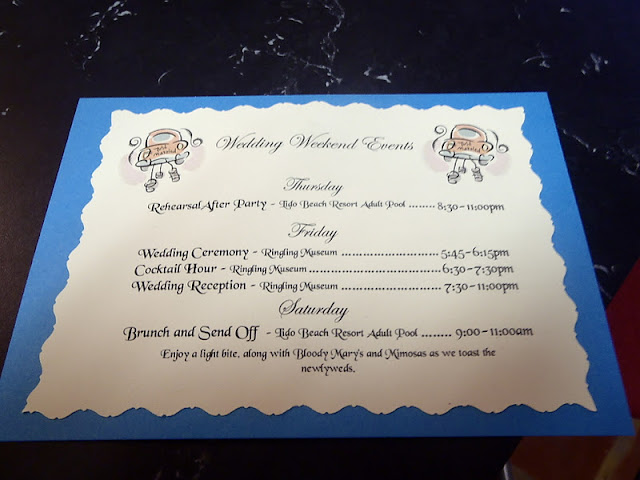 Wedding Weekend Events
Just Married
Just Married
Thursday
Rehearsal After Party - Lido Beach Resort Adult Pool ........ 8:30-11:00pm
Friday
Wedding Ceremony - Ringling Museum ........................ 5:45-6:15pm
Cocktail Hour - Ringling Museum ................................ 6:30-7:30pm
Wedding Reception - Ringling Museum ........................ 7:30-11:00pm
Saturday
Brunch and Send Off - Lido Beach Resort Adult Pool ........ 9:00-11:00am
Enjoy a light bite, along with Bloody Mary's and Mimosas as we toast the
newlyweds.